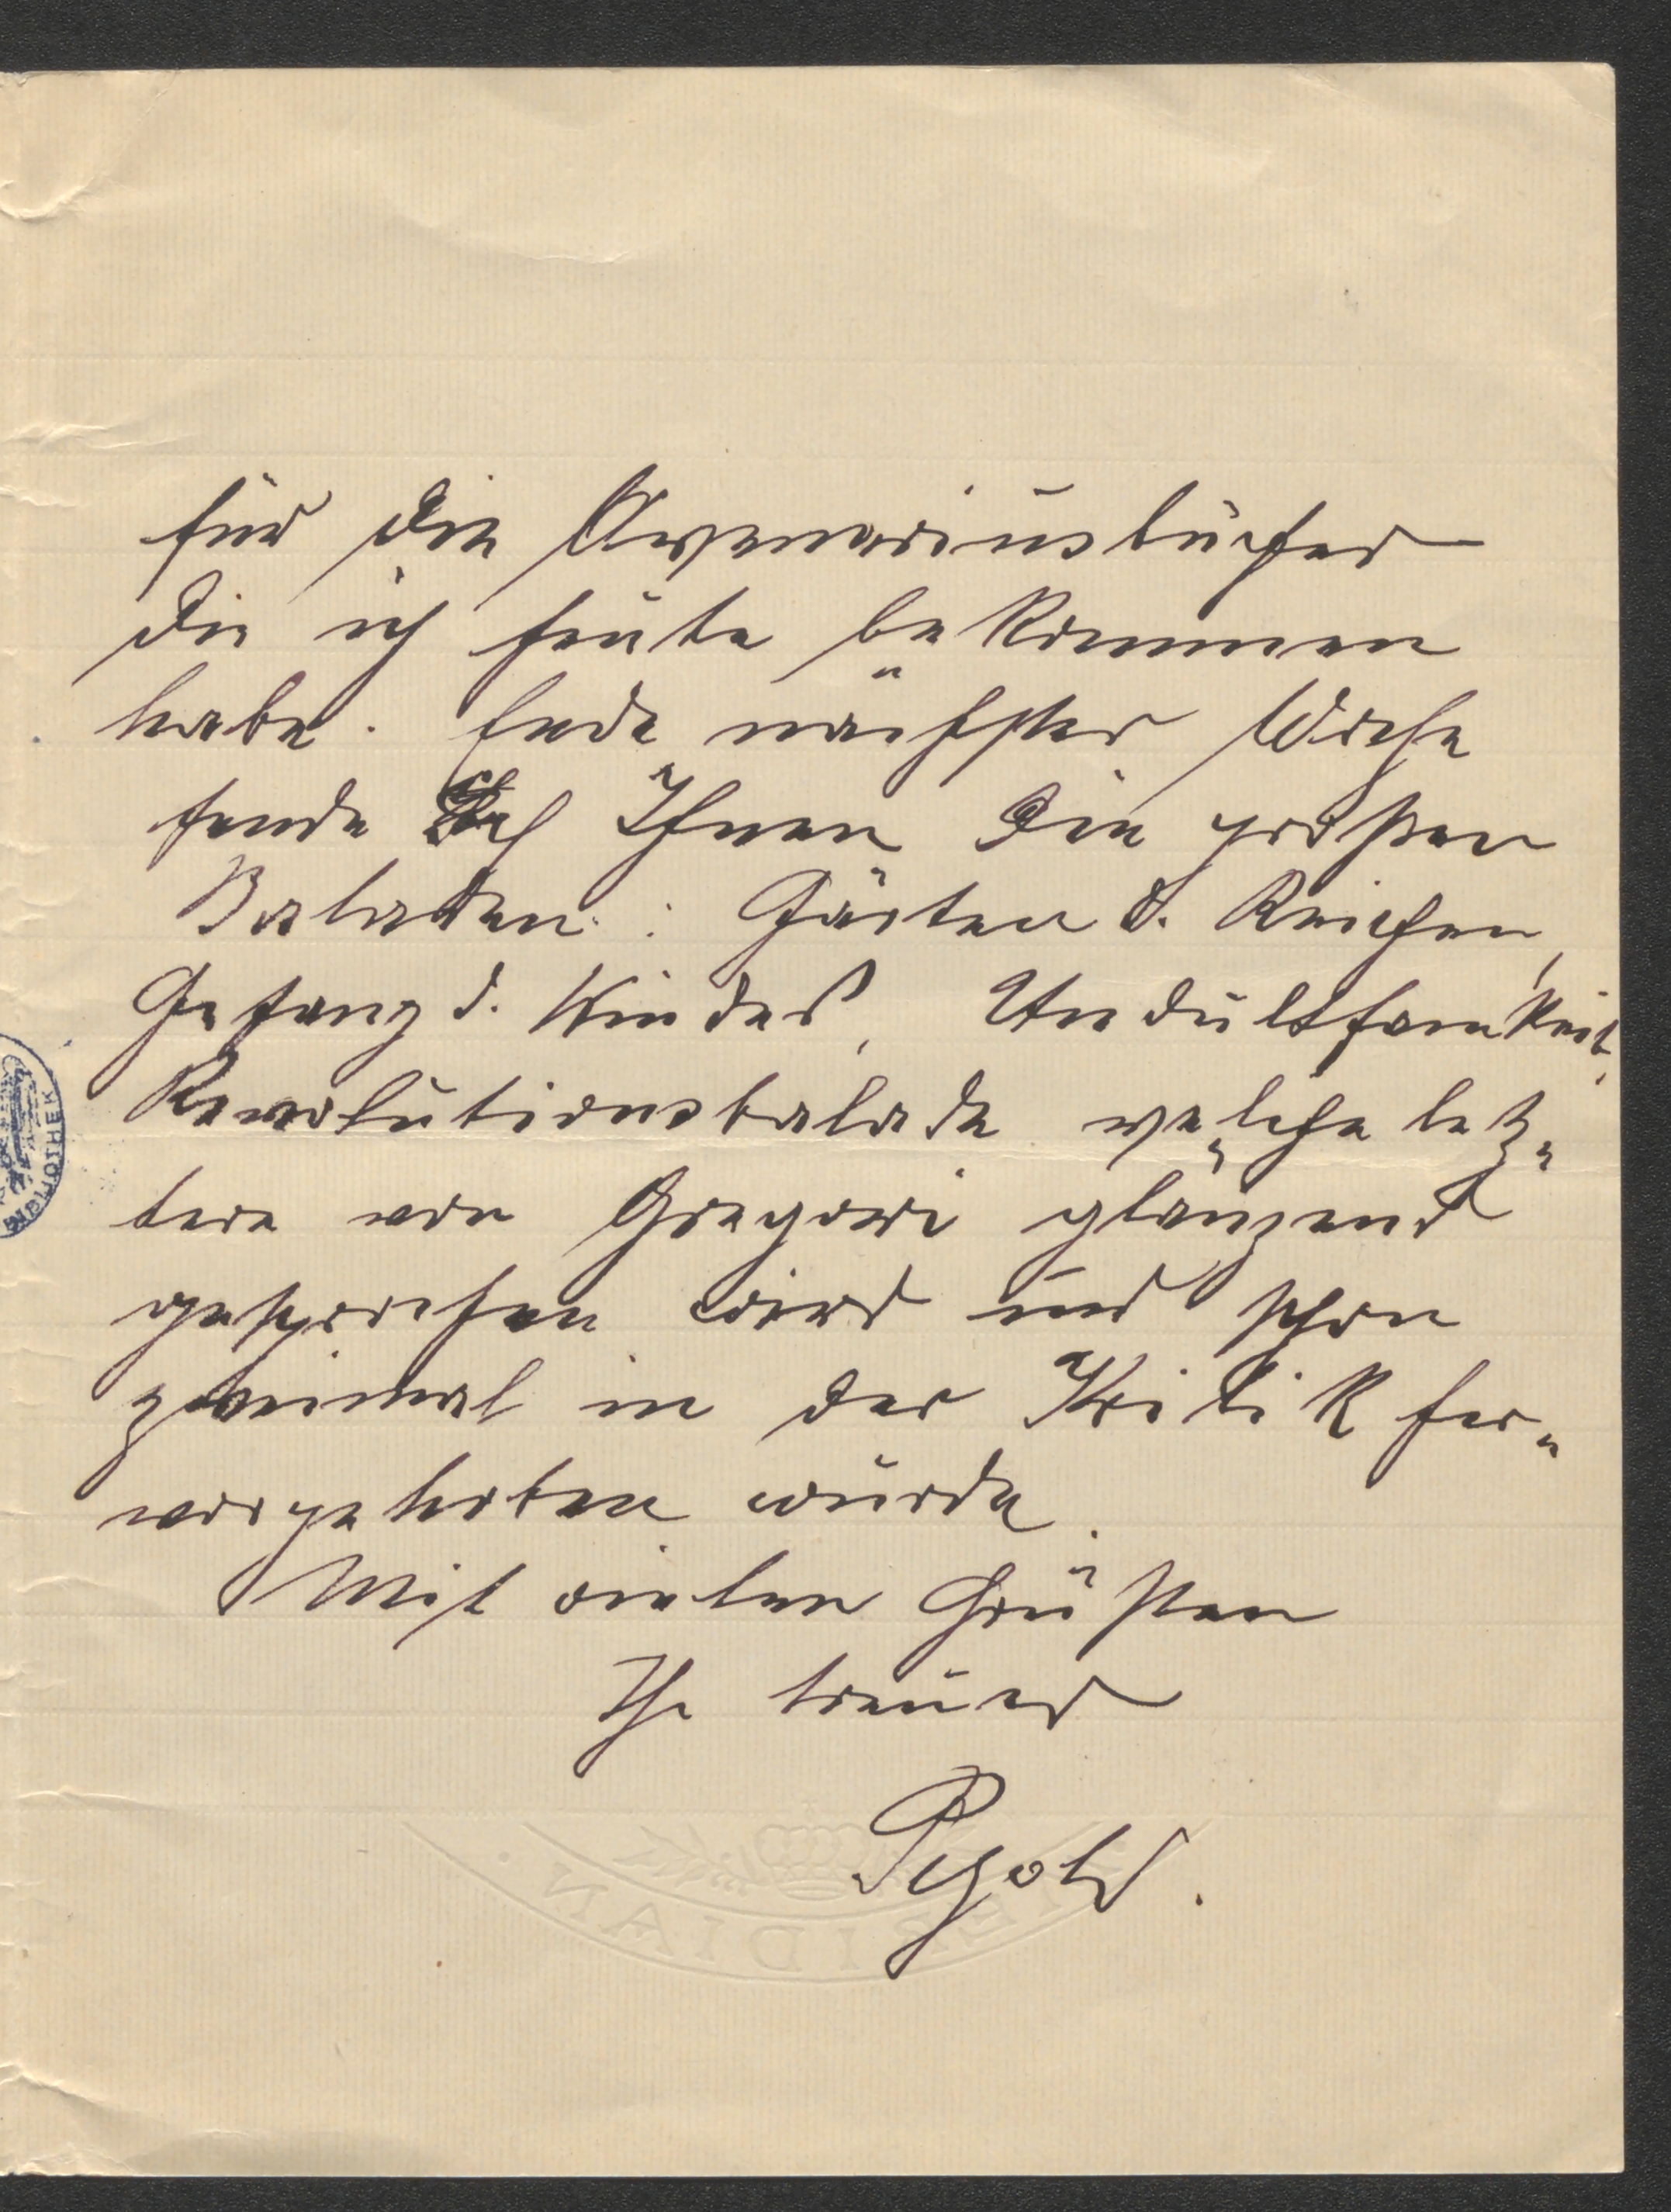 für die Avenariusbücher
die ich heute bekommen
habe. Ende nächster Woche
sende ich Ihnen die großen
Baladen: Gärten d. Reichen,
Gesang d. Kindes, Unduldsamkeit,
Revolutionsbalade welche letz=
tere von Gregori glänzend
gesprochen wird und schon
zweimal in der Kritik her=
vorgehoben wurde.
Mit vielen Grüßen
Ihr treuer
Petzold.
BIBLIOTHEK